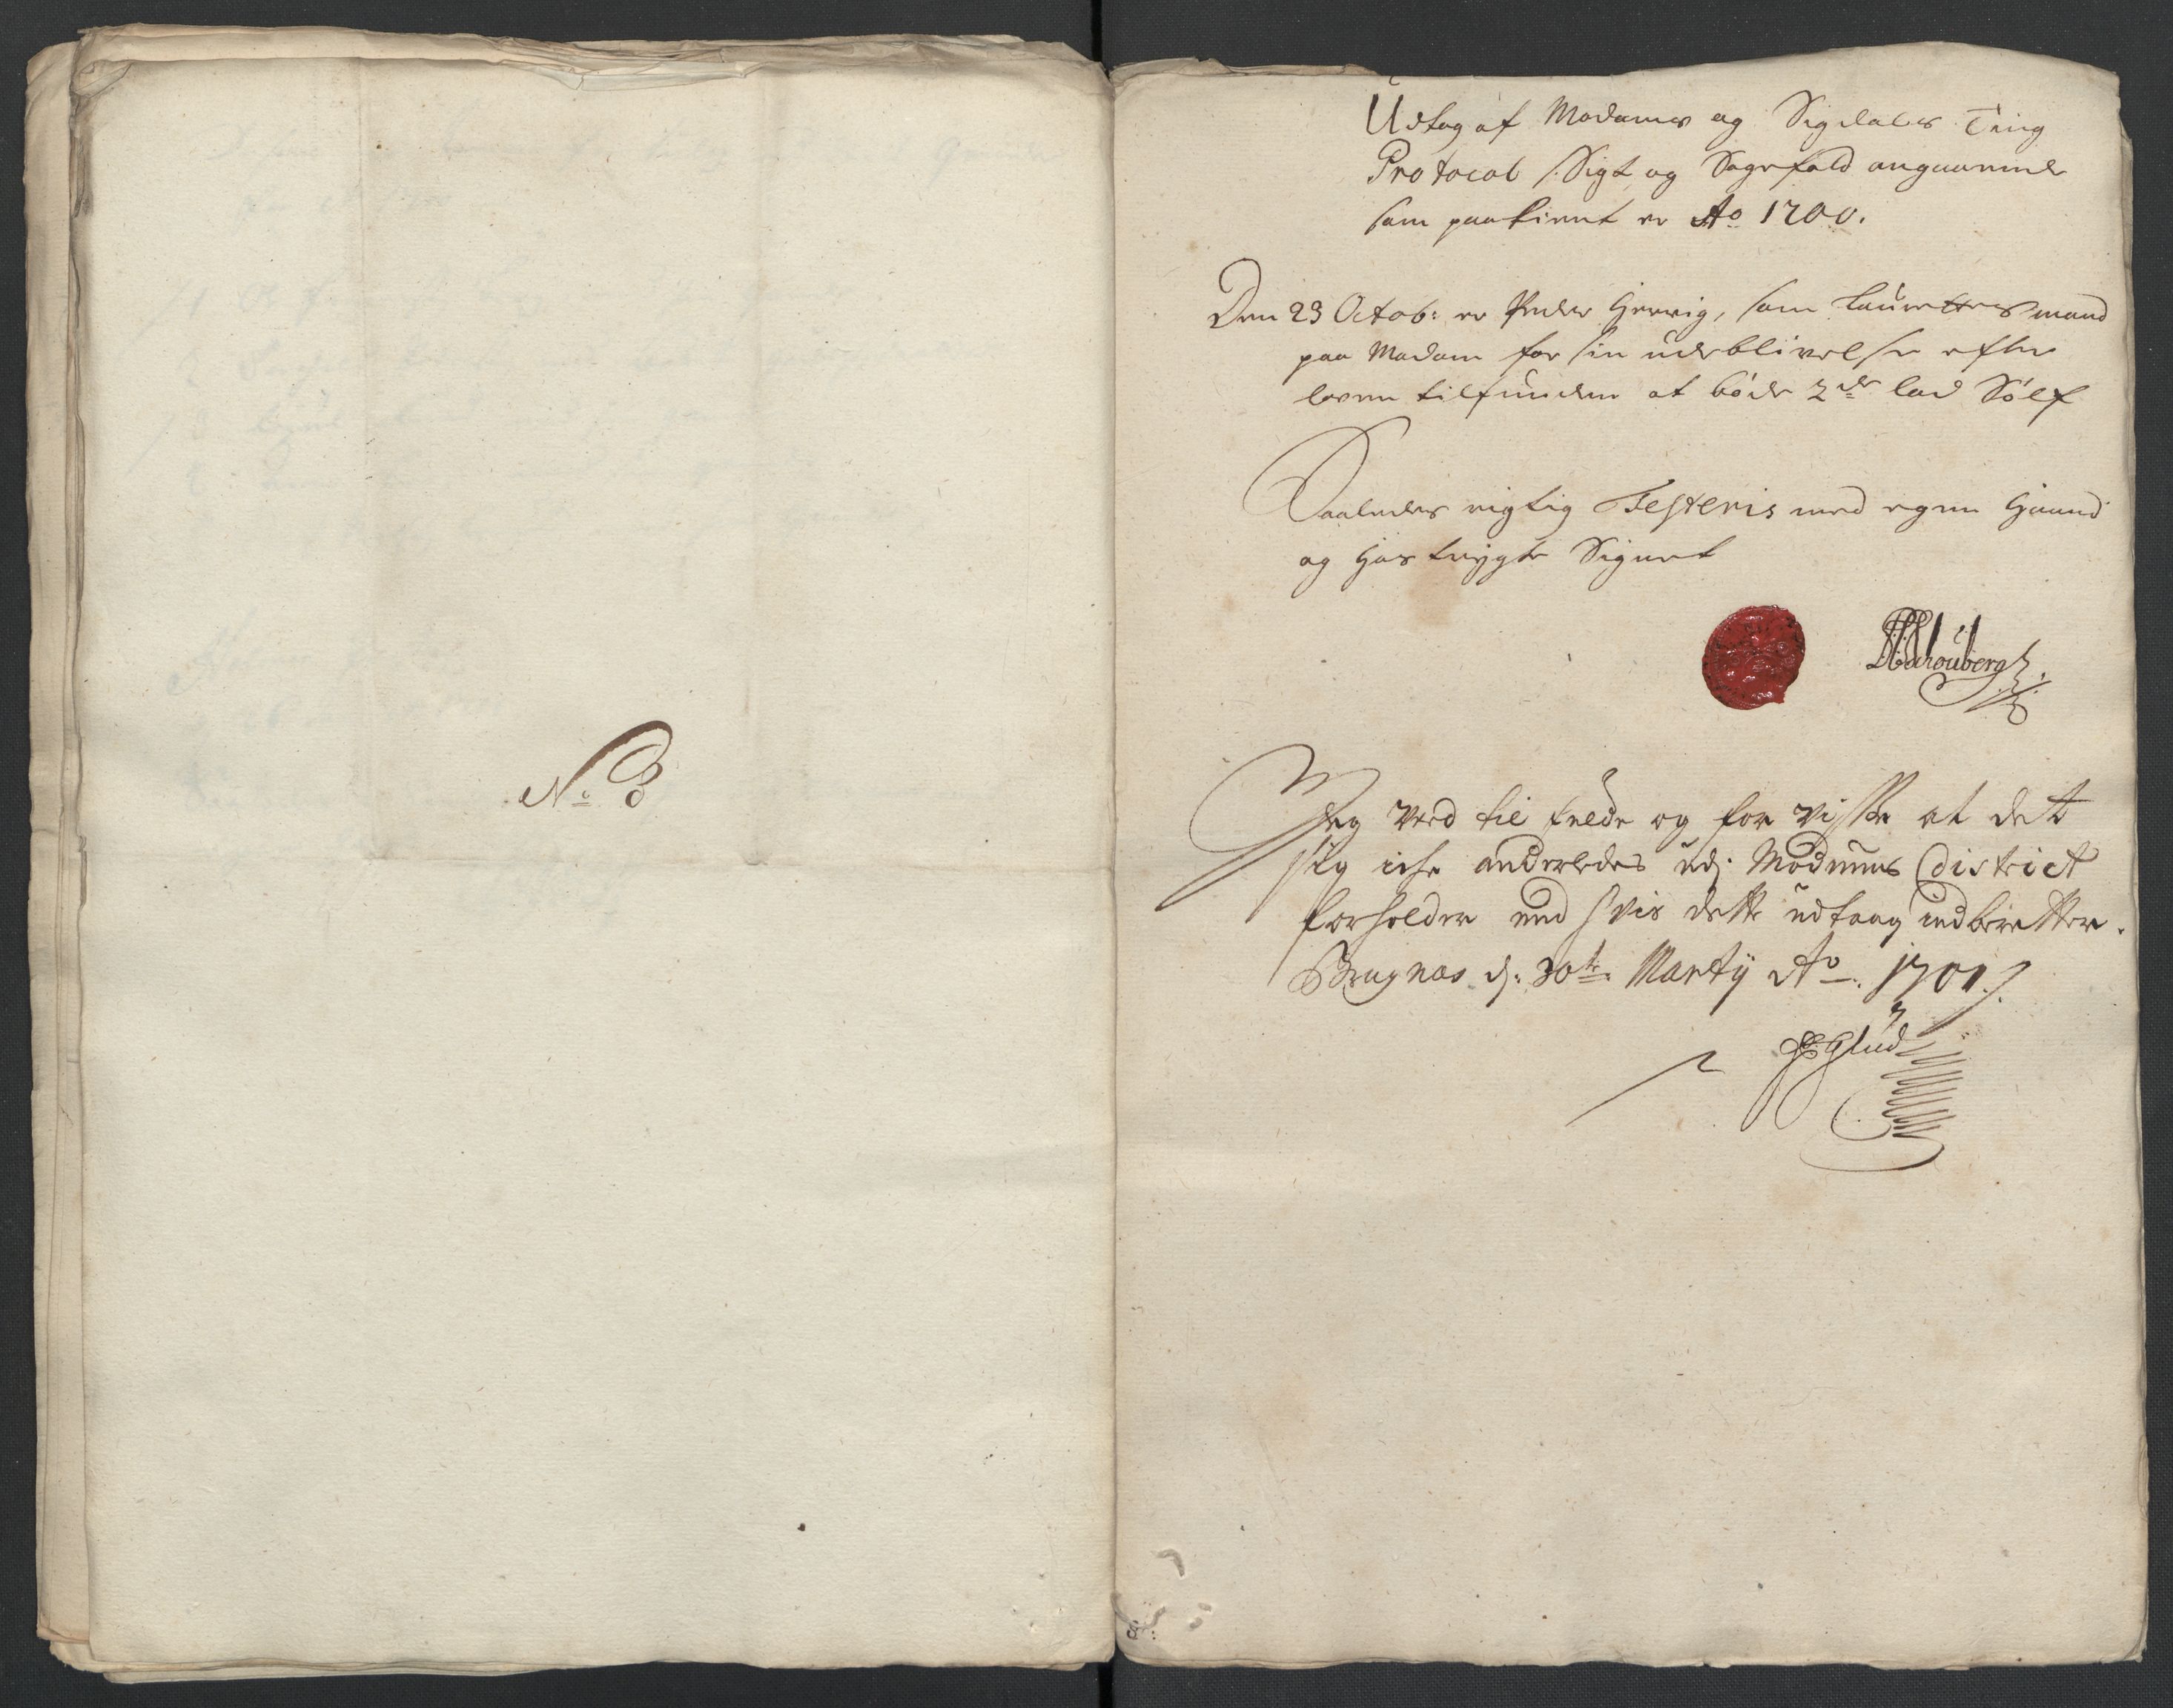 No 8
Udtog af Modums og Sigdals Ting
Protocol /: Sigt og Sagefald angaaende
som paatient er Ao 1700.
Den 23 Octob: er Peder Hervig, som Laurettes mand
paa Modum for sin udeblivelse efter
loven tilfunden at bøde 2de lod Sølf
Saaledes rigtig Testeris med egen Haand
og hos trygte Signet
Schouberg
Jeg Veed til fulde og for visse at det
sig iche anderledes udj Modums District
forholder end hvis dette udtaag indberetter.
Bragnæs dj: 30te Martij Ao. 1701
Glud